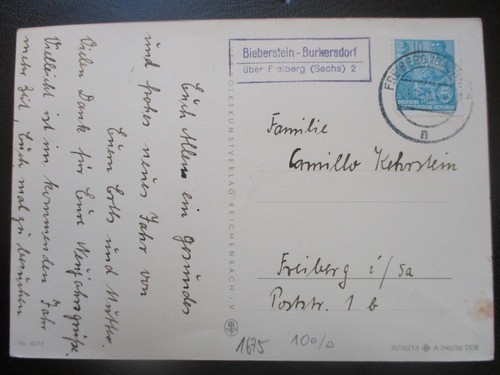 Euch Allen ein gesundes
und frohes neues Jahr von
Euern Lotts und Mutter.
Vielen Dank für Eure Neujahrsgrüße.
Vielleicht ist im kommenden Jahr
mehr Zeit, Euch mal zu besuchen
VOLKSKUNSTVERLAG REICHENBACH i. V.
Bieberstein-Burkersdorf
über Freiberg (Sachs) 2
10
5
DEUTSCHE DEMOKRATISCHE REPUBLIK
FREIBERG
n
Familie
Camillo Kehrstein
Freiberg i/Sa
Poststr. 1 b
1675
100/0
A 246/56 DDR